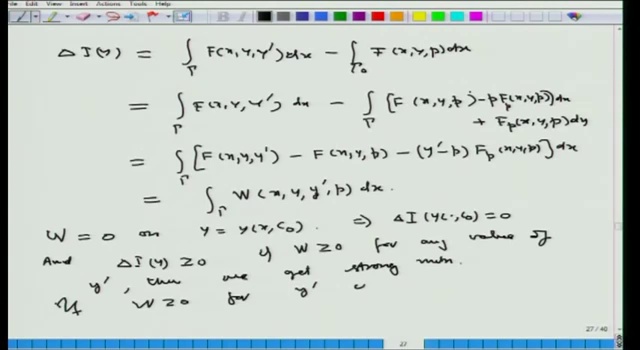 View Insert Actions Tools Help
Δ I(y) = ∫_Γ F(x,y,y')dx − ∫_Γ₀ F(x,y,p)dx
= ∫_Γ F(x,y,y')dx − ∫_Γ [F(x,y,p) − pF_p(x,y,p)]dx
+ F_p(x,y,p)dy
= ∫_Γ [F(x,y,y') − F(x,y,p) − (y'−p) F_p(x,y,p)]dx
= ∫_Γ W(x,y,y',p) dx.
W = 0 on y = y(x,c₀). ⇒ ΔI(y(·,c₀)) = 0
And ΔI(y) ≥ 0 if W ≥ 0 for any value of
y', then we get strong min.
If W ≥ 0 for y'
27 / 40
27